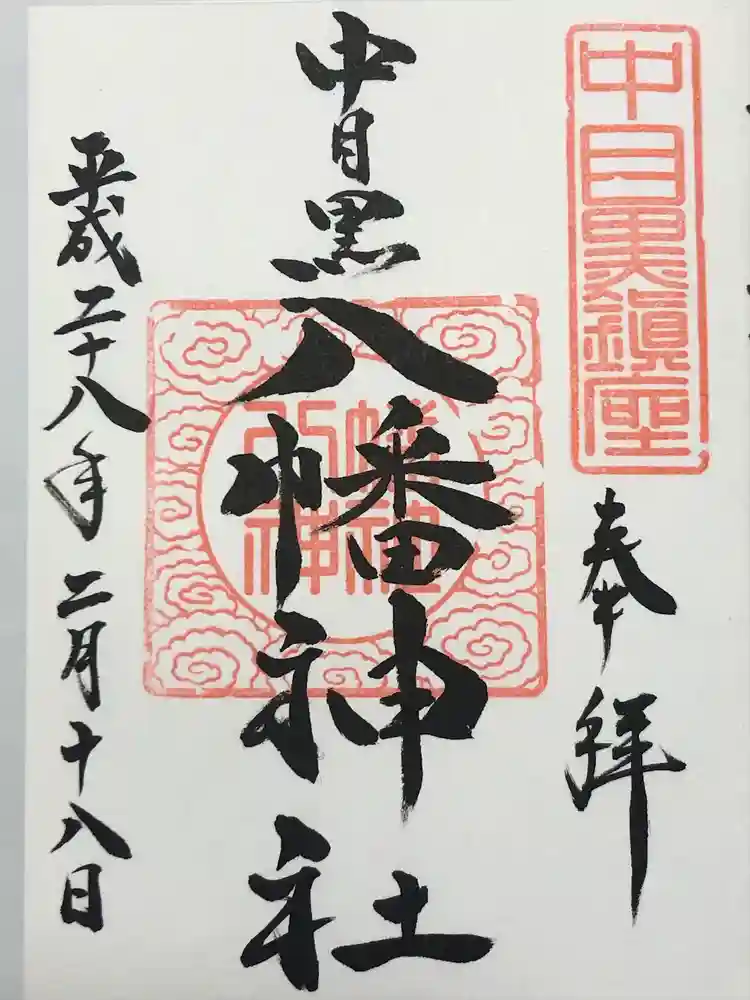 中目黒鎮座
奉拝
中目黒八幡神社
八幡神社
平成二十八年二月十八日